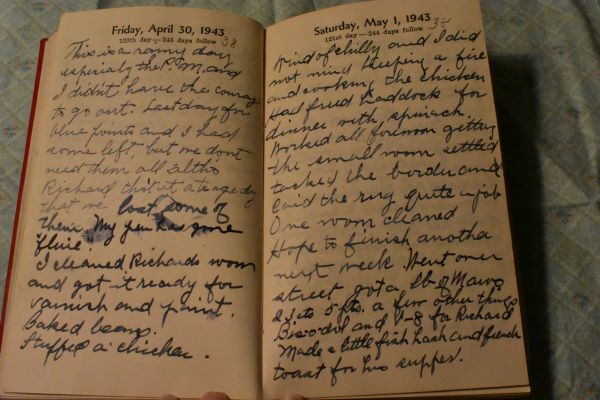 Friday, April 30, 1943
120th day—245 days follow 38
This is a rainy day
especialy the P.M. and
I didn't have the courage
to go out. Last day for
blue points and I had
some left, but we don't
need them all altho
Richard tho't it a tragedy
that we lost some of
them. My pen has gone
"flui
I cleaned Richards room
and got it ready for
varnish and paint.
Baked beans.
Stuffed a chicken.
Saturday, May 1, 1943
121st day—244 days follow
Kind of chilly and I did
not mind keeping a fire
and cooking the chicken
Had fried haddock for
dinner with spinach.
Worked all forenoon getting
the small room settled
tacked the border and
laid the rug quite a job
One room cleaned
Hope to finish another
next week. Went over
street got a lb of
23¢ to 5 pts. a few other things
and for Richard
Made a little fish hash and french
toast for his supper.